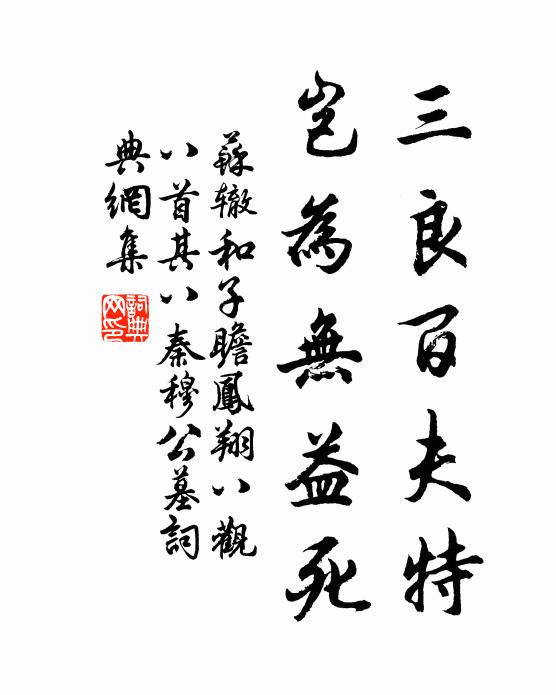 三良百夫特
豈為無益死
蘇轍和子瞻鳳翔八觀
八首其八秦穆公墓詞
典網集
詞典
网印